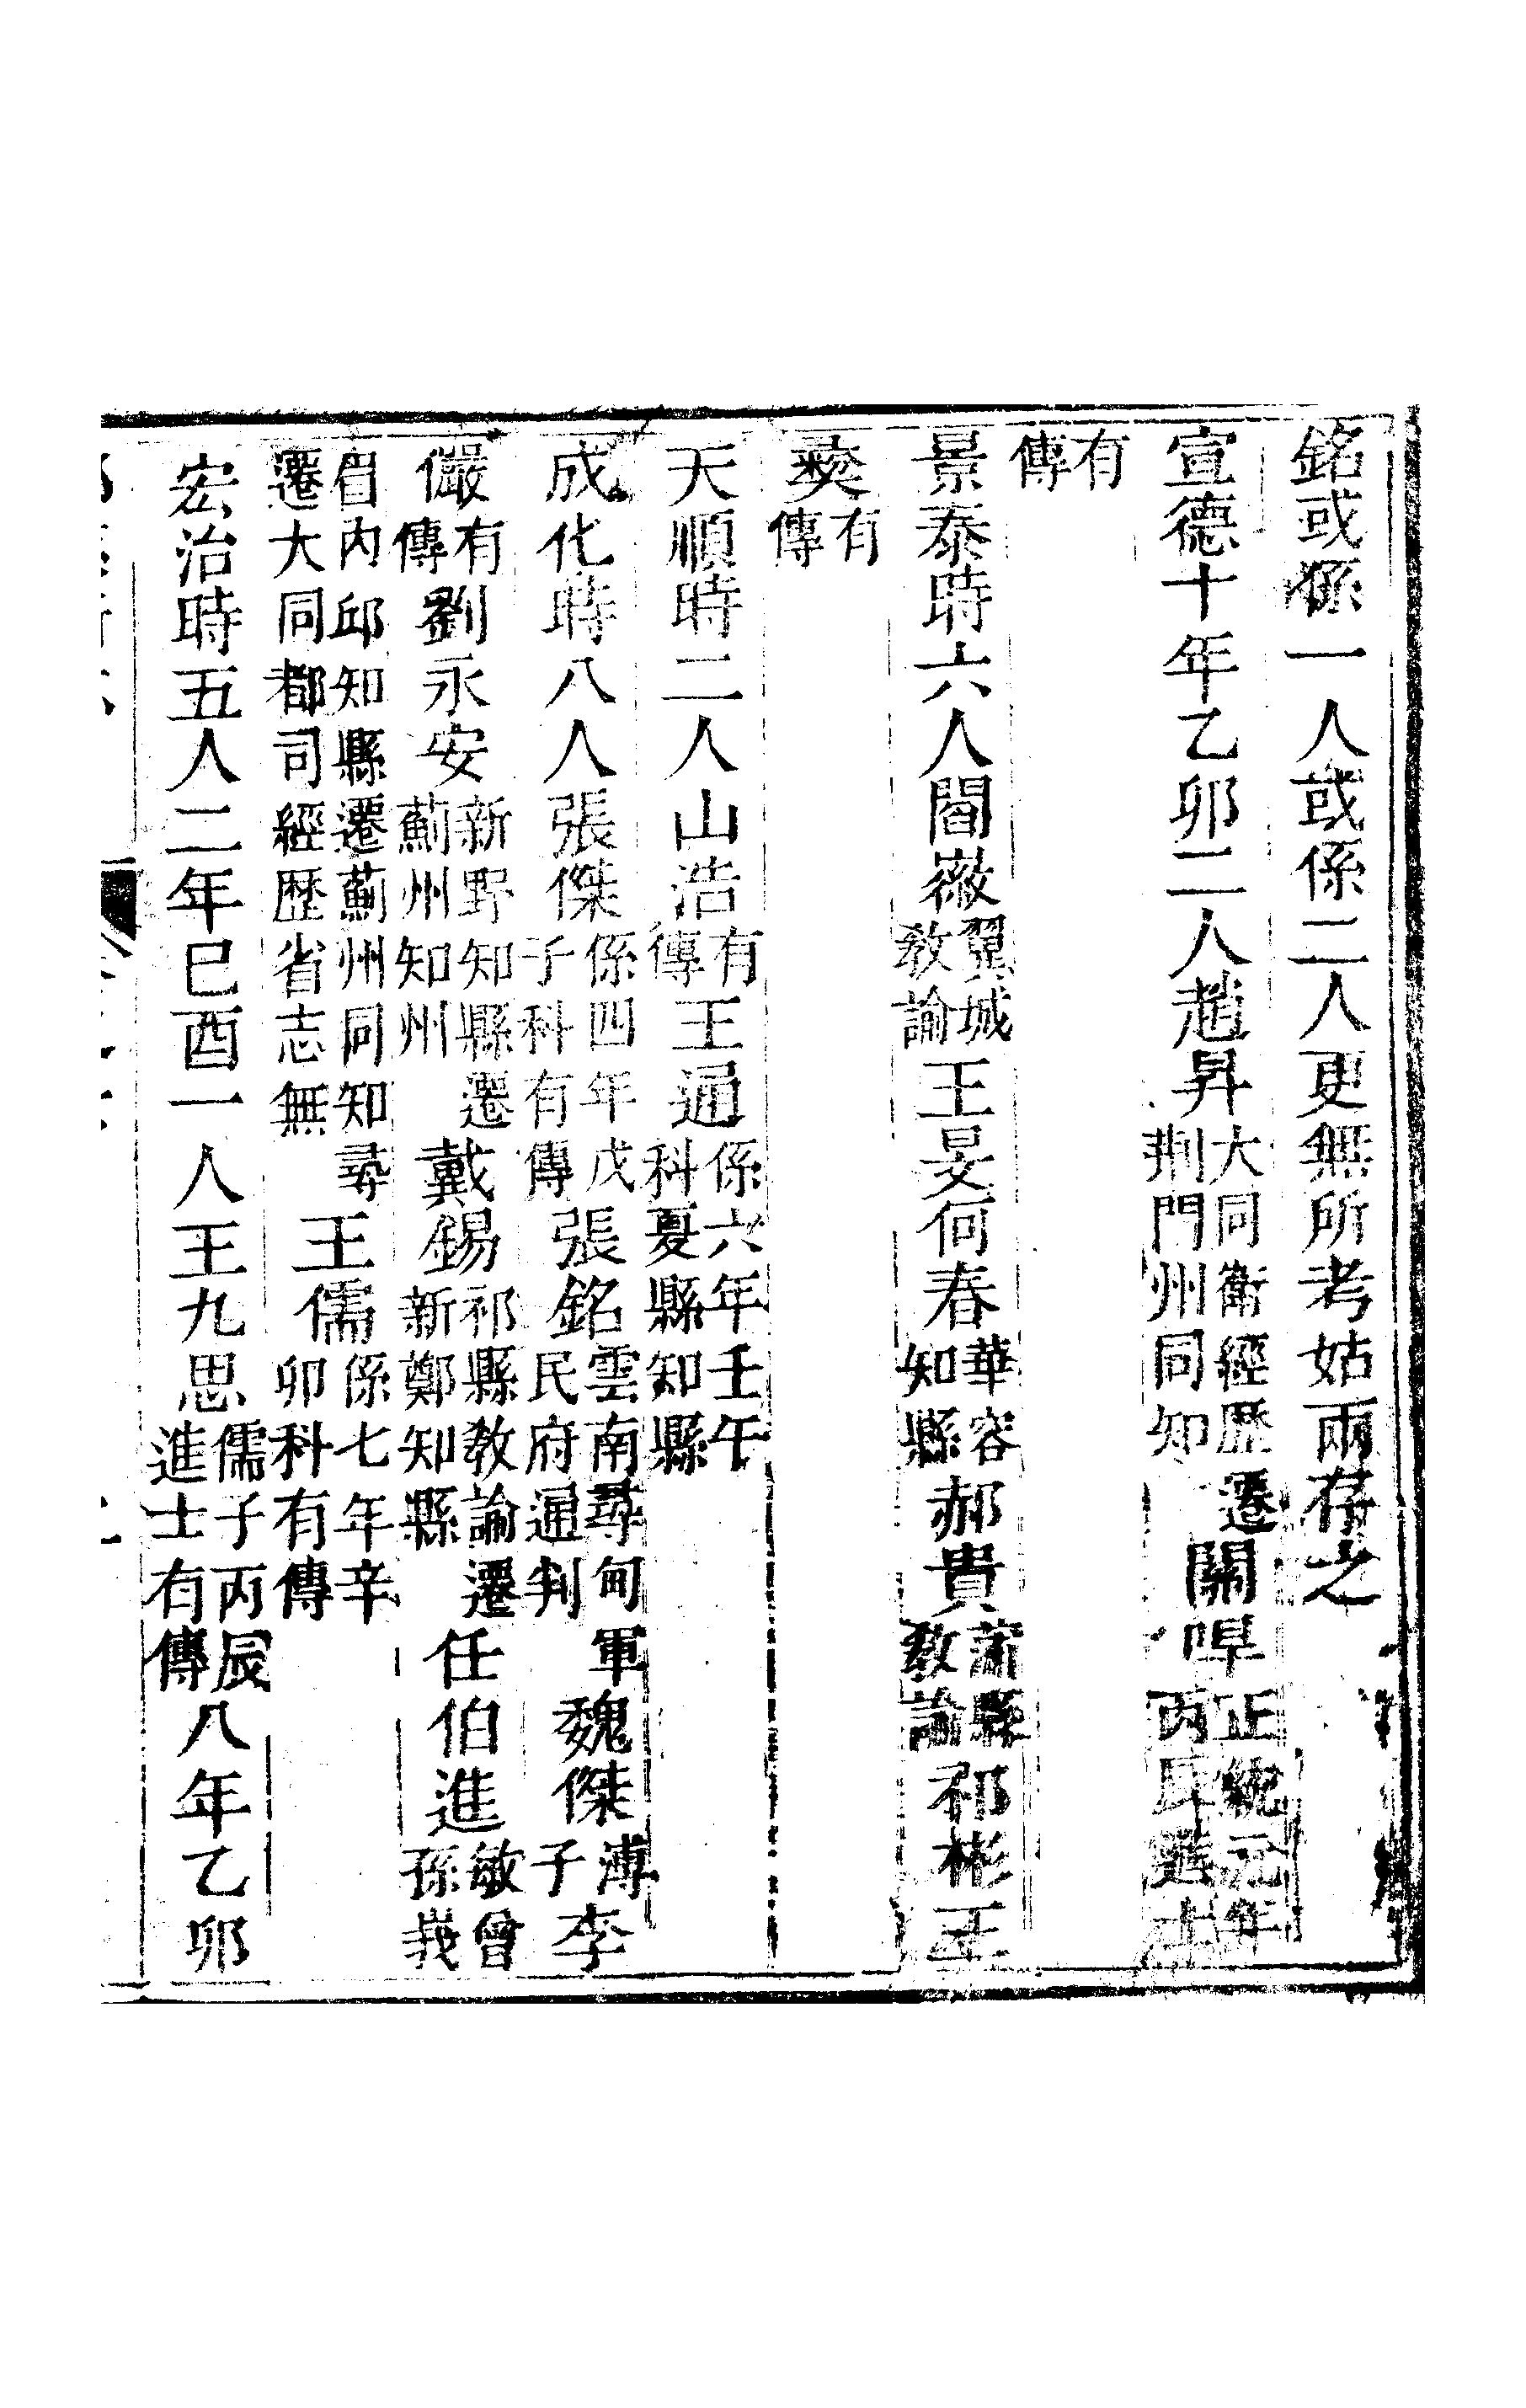 銘或係一人或係二人更無所考姑兩存之
宣德十年乙卯二人趙昇大同衛經歷遷荆門州同知關㫤正統元年丙辰進士
有傳
景泰時六人閻薇翼城教諭王旻何春華容知縣郝貴蒲縣教諭祁彬王
爕有傳
天順時二人山浩有傳王通係六年壬午科夏縣知縣
成化時八人張傑係四年戊子科有傳張銘雲南尋甸軍民府通判魏傑溥子李
儼有傳劉永安新野知縣遷薊州知州戴錫祁縣教諭遷新鄭知縣任伯進敏曾孫莪
眉内邱知縣遷薊州同知尋遷大同都司經歴省志無王儒係七年辛卯科有傳
宏治時五人二年巳酉一人王九思儒子丙辰進士有傳八年乙卯